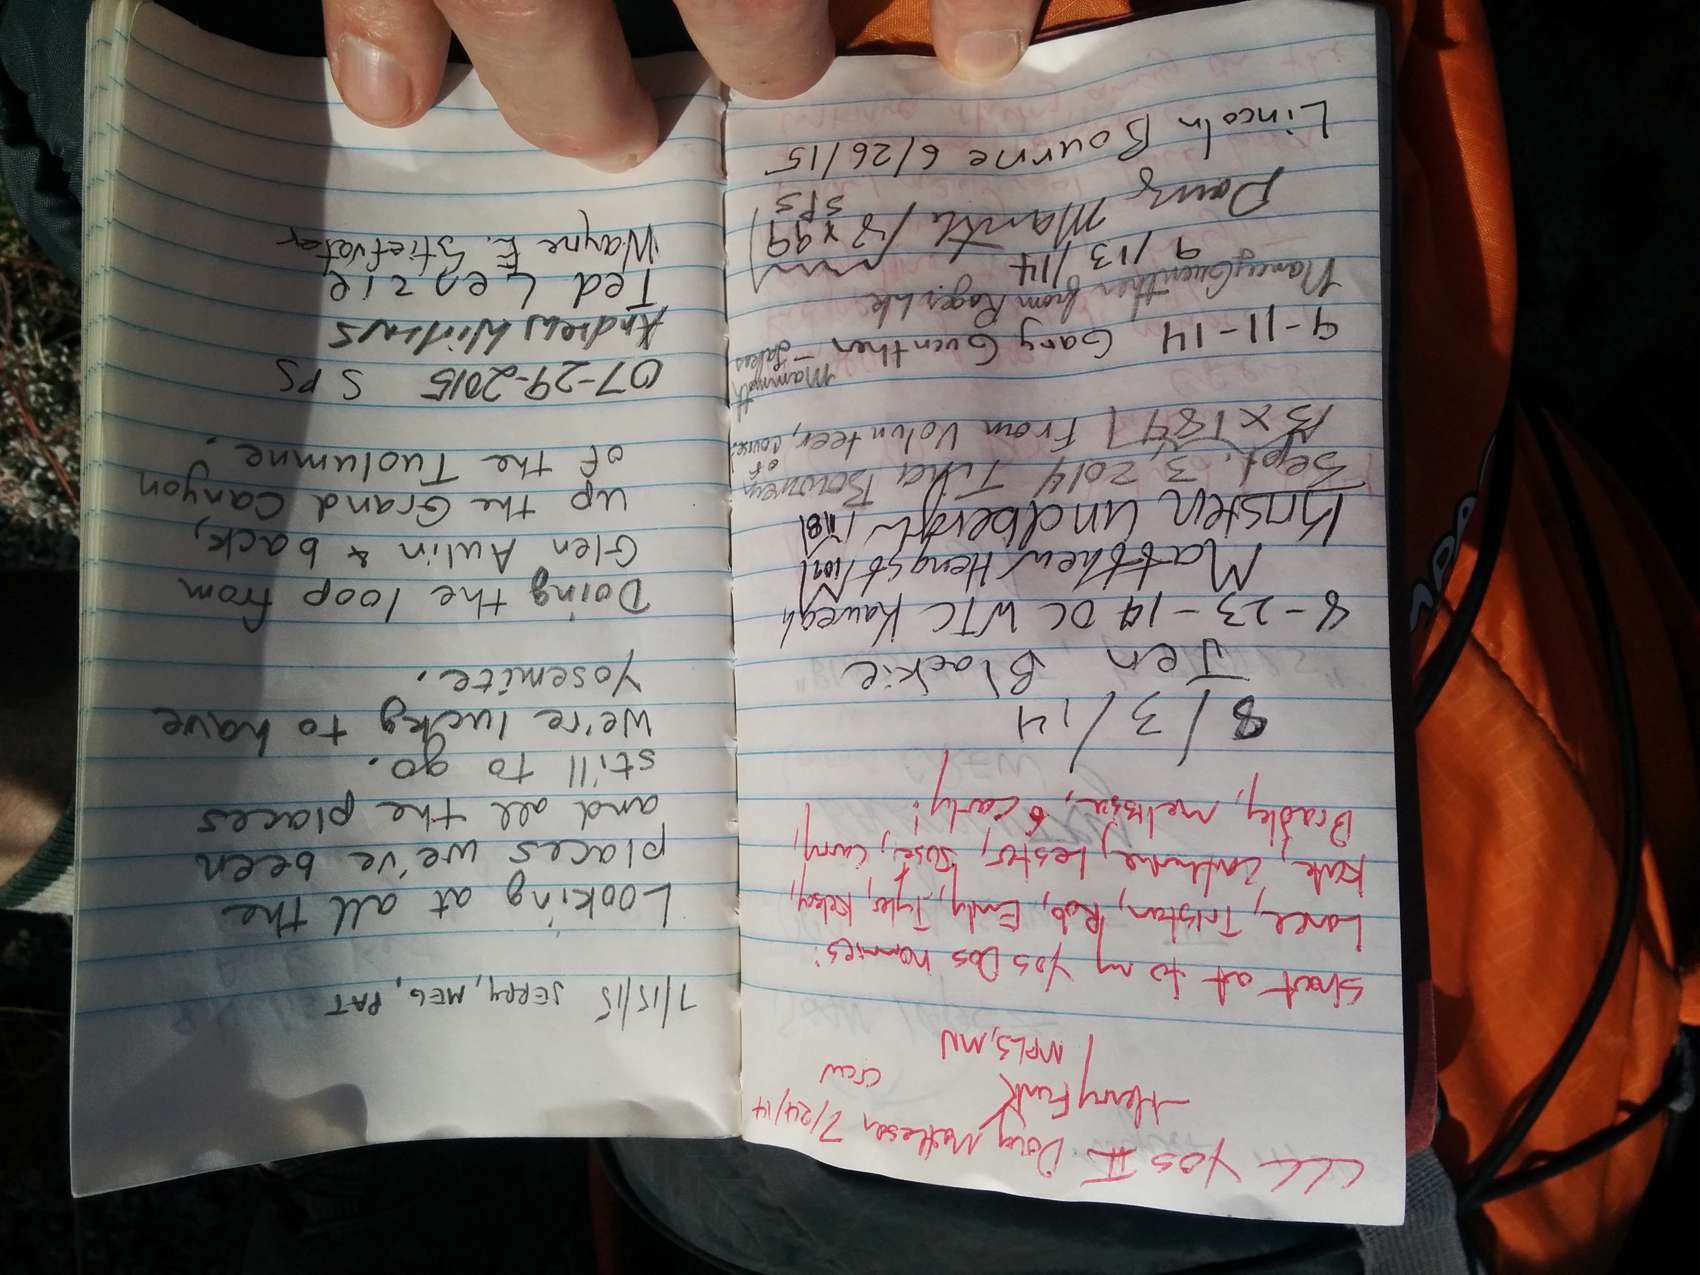 CCC YOS II Doug Matteson 7/24/14
Henry Funk Crew
MPLS, MN
Shout out to my Yos Dos homies:
Lance, Tristan, Rob, Emily, Tyler, Kelsey,
Lester, Jose,
Bradley, Melissa, & Carly!
8/3/14
Jen Blackie
8-23-14 OC WTC Kaweah
Matthew Hengst
Kristen Lindbergh
Sept. 3 2014 Tika Bowren
PS X 1847 From Volunteer, of course.
9-11-14 Gary Guenther - Mammoth Lakes
Nancy Guenther from
9/13/14
Doug Mantle
SPS
Lincoln Bourne 6/26/15
7/15/15 JERRY, MEG, PAT
Looking at all the
places we've been
and all the places
still to go.
We're lucky to have
Yosemite.
Doing the loop from
Glen Aulin & back,
up the Grand Canyon
of the Tuolumne.
07-29-2015 SPS
Andrew
Ted Lenzie
Wayne E. Stiefvater